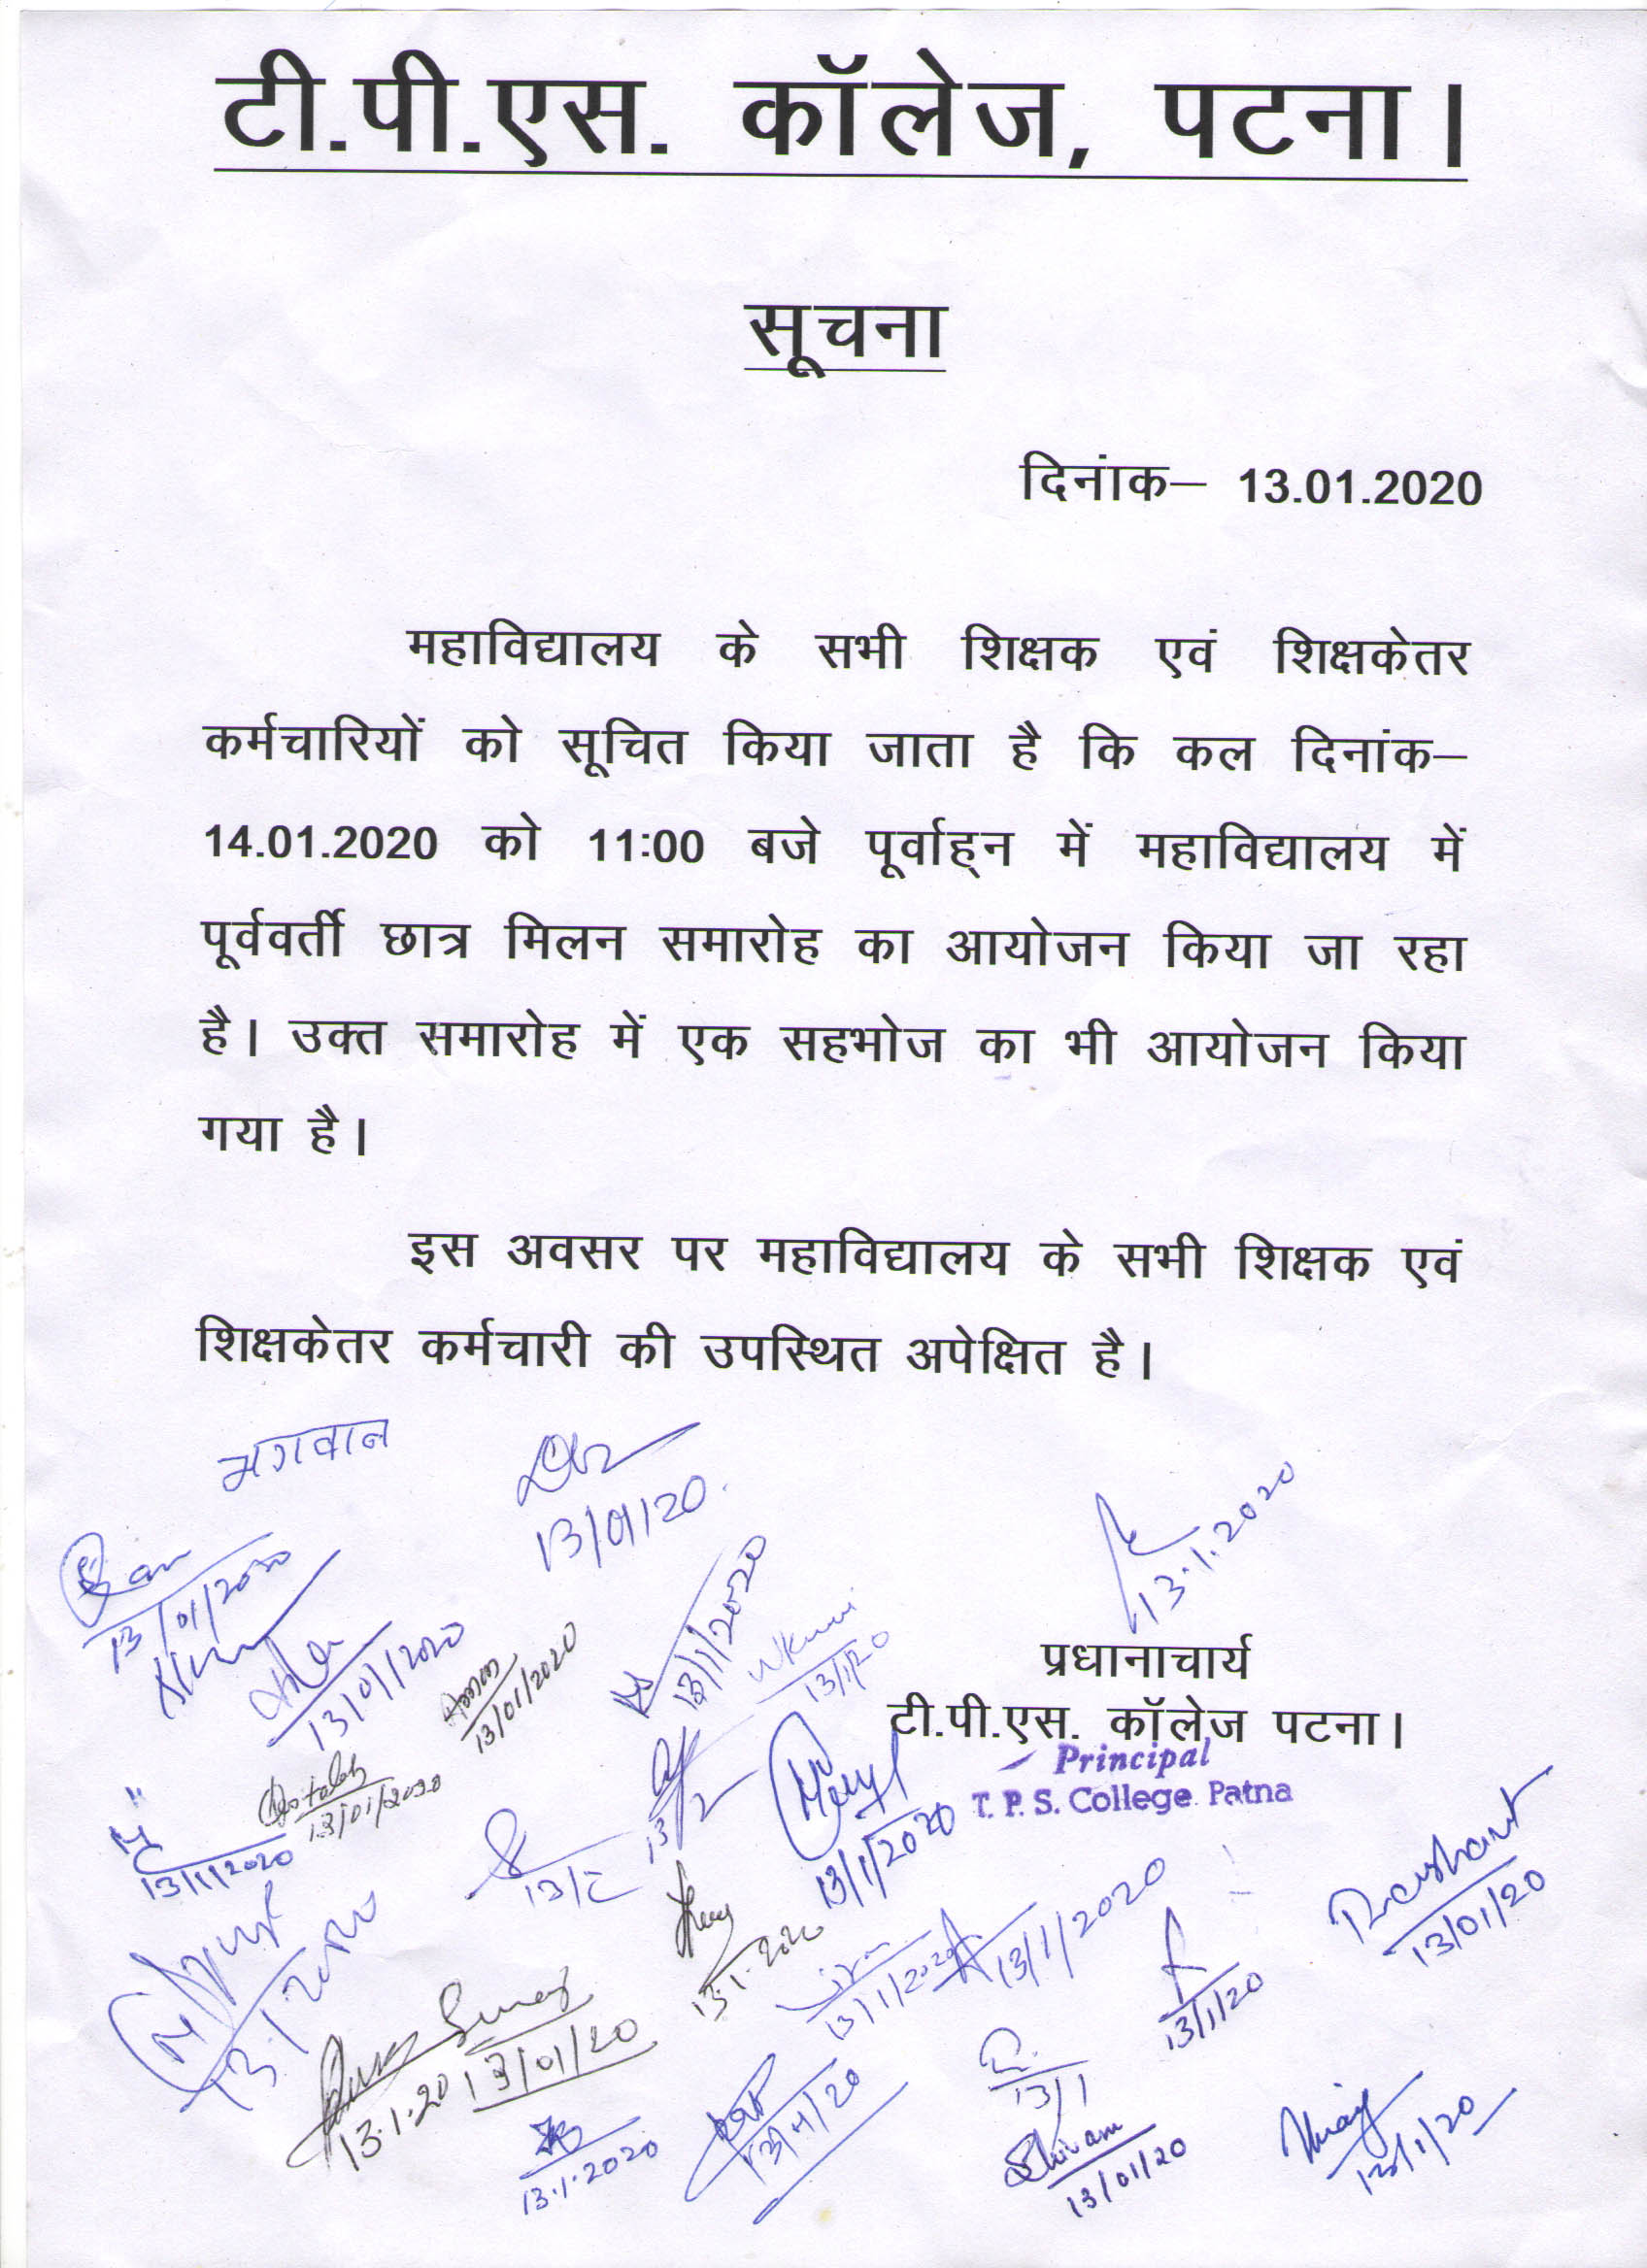 टी.पी.एस. कॉलेज, पटना।
सूचना
दिनांक– 13.01.2020
महाविद्यालय के सभी शिक्षक एवं शिक्षकेतर
कर्मचारियों को सूचित किया जाता है कि कल दिनांक–
14.01.2020 को 11:00 बजे पूर्वाह्न में महाविद्यालय में
पूर्ववर्ती छात्र मिलन समारोह का आयोजन किया जा रहा
है। उक्त समारोह में एक सहभोज का भी आयोजन किया
गया है।
इस अवसर पर महाविद्यालय के सभी शिक्षक एवं
शिक्षकेतर कर्मचारी की उपस्थित अपेक्षित है।
भगवान
13/01/20.
13.1.2020
13/01/2020
13/01/2020
13/01/2020
13/1/2020
प्रधानाचार्य
टी.पी.एस. कॉलेज पटना।
Principal
T. P. S. College Patna
13/01/2020
13/1/2020
13/1/2020
Prashant
13/01/20
13.1.2020
13.1.2020
13/1/2020
13/1/2020
13/1/20
Suraj
13/01/20
13.1.20
13/1
13.1.2020
Shivam
13/01/20
13/1/20